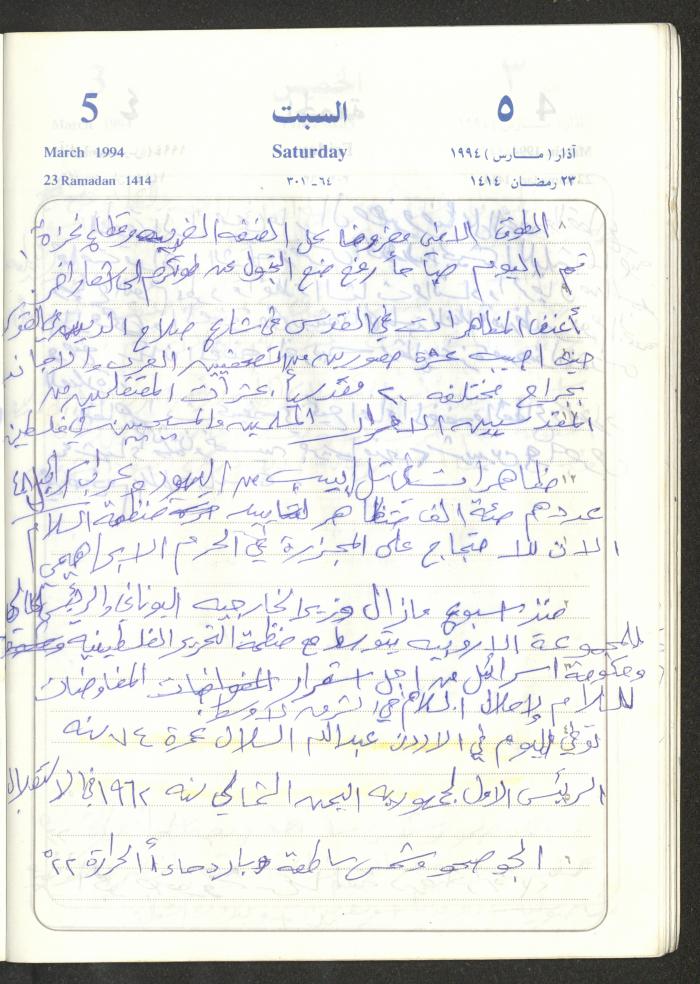 5 السبت ٥
March 1994 Saturday آذار (مارس) ١٩٩٤
23 Ramadan 1414 ٦٤-٣٠١ ٢٣ رمضان ١٤١٤
الطوق الامني مفروضا على الضفه الغربيه وقطاع غزة
تم اليوم صباحاً رفع منع التجول عن طولكرم الى اشعار اخر
أعنف المظاهرات في القدس في شارع صلاح الدين
حيث اصيب عشرة مصورين من الصحفيين العرب والاجانب
بجراح مختلفه ٢٠ مقدسياً عشرات المعتقلين من
المقدسيين الاحرار المسلمين والمسيحيين في فلسطين
مظاهرات في تل ابيب من اليهود وعرب ٤٨
عددهم مئة الف متظاهر لتأييد منظمة السلام
الان للاحتجاج على المجزرة في الحرم الابراهيمي
منذ اسبوع مازال وزير الخارجيه اليوناني والرئيس الحالي
للمجموعة الاروبيه يتوسط مع منظمة التحرير الفلسطينية
وحكومة اسرائيل من اجل استمرار المفاوضات
للسلام واحلال السلام في الشرق الاوسط
توفي اليوم في الاردن عبدالله السلال عمرة ٧٤ سنه
الرئيس الاول لجمهوريه اليمن الشمالي سنه ١٩٦٢ في الاستقلال
الجو صحو وشمس ساطعة وبارد مساءاً الحرارة ٢٢°